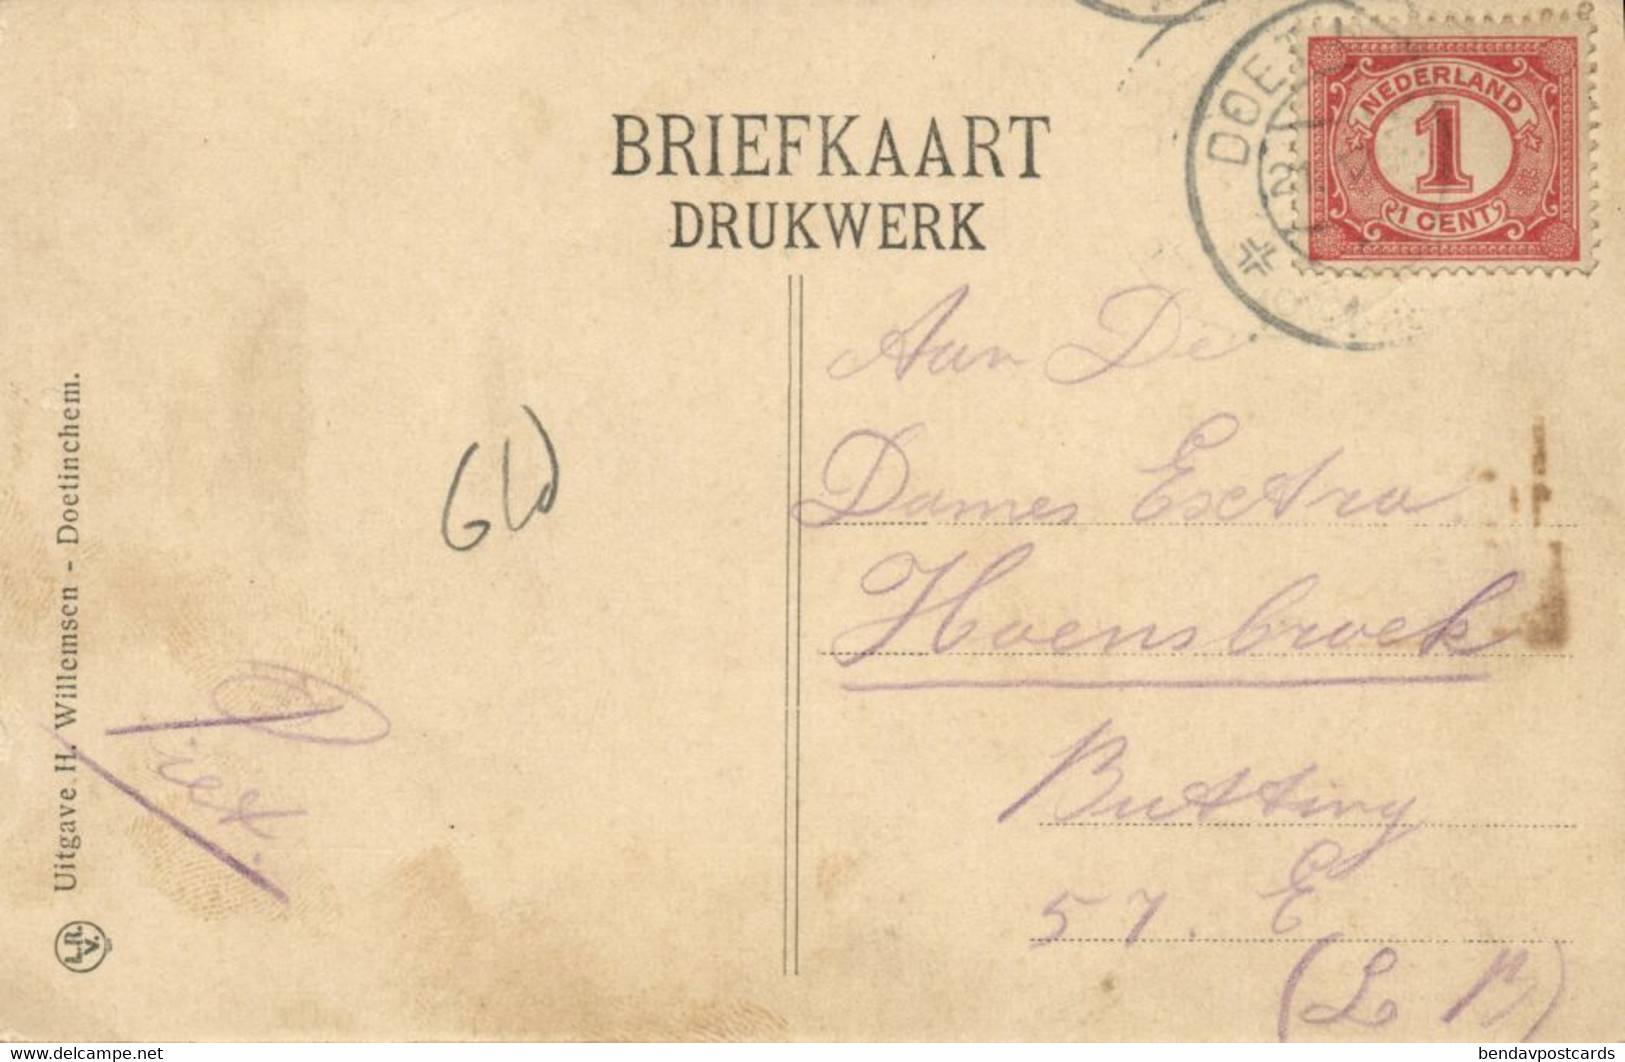 BRIEFKAART
DRUKWERK
DOET
NEDERLAND
1
1 CENT
Aan De
Dames Esctra.
Hoensbroek
Butting
57. E
(L B)
Gld
Piet.
Uitgave H. Willemsen - Doetinchem.
L.R.
V.
delcampe.net
bendavpostcards